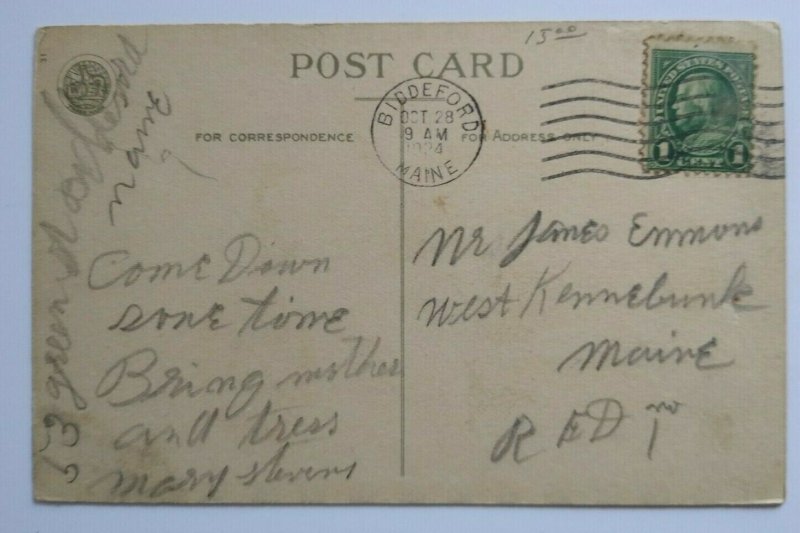 15 00
POST CARD
BIDDEFORD
OCT 28
9 AM
1924
MAINE
FOR CORRESPONDENCE
FOR ADDRESS ONLY
UNITED STATES POSTAGE
1 CENT 1
Come Down
some time
Bring mother
and tress
Mary Stevens
53 green st
maine
Mr James Emmons
West Kennebunk
Maine
R F D no 1